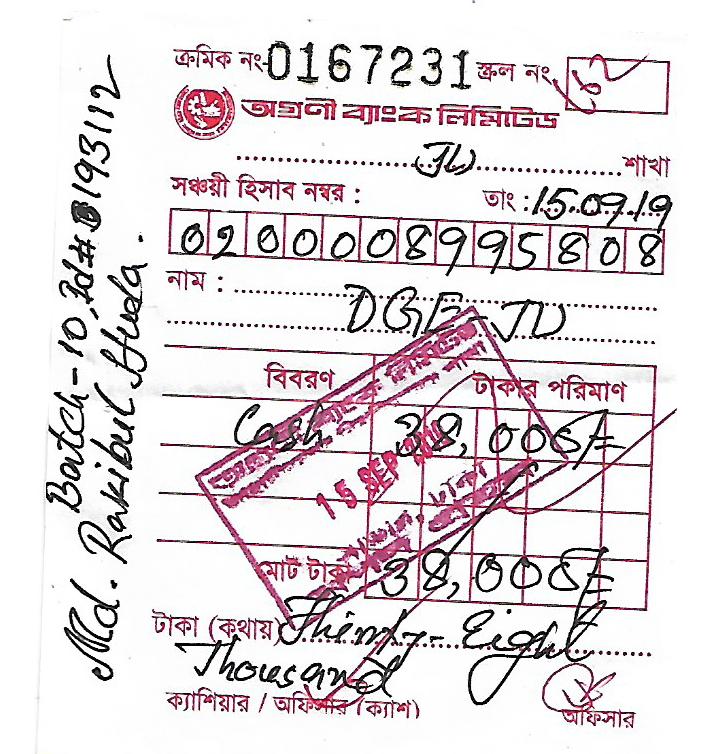 ক্রমিক নং 0167231 স্ক্রল নং 162
অগ্রণী ব্যাংক লিমিটেড
JU শাখা
সঞ্চয়ী হিসাব নম্বর : তাং : 15.09.19
0200008995808
নাম :
DGE-JU
বিবরণ টাকার পরিমাণ
Cash 38,000/=
15 SEP
মোট টাকা 38,000/=
টাকা (কথায়) Thirty-Eight
Thousand
ক্যাশিয়ার / অফিসার (ক্যাশ) অফিসার
Batch-10, Id# 193112
Md. Rakibul Huda.